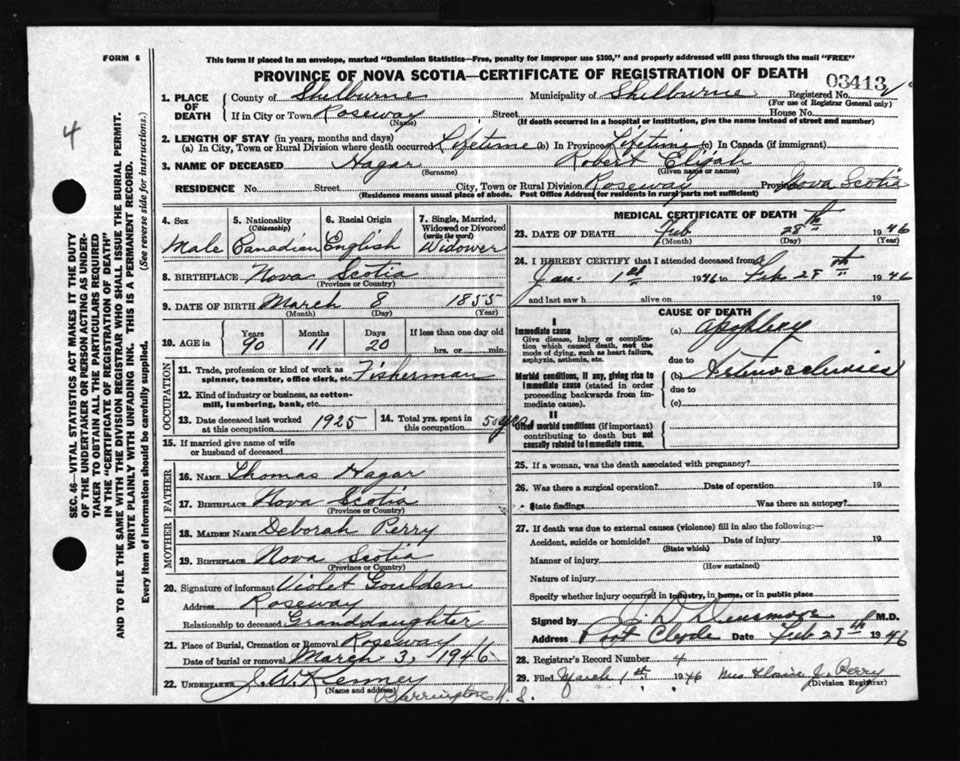 FORM 6
This form if placed in an envelope, marked "Dominion Statistics—Free, penalty for improper use $300," and properly addressed will pass through the mail "FREE"
PROVINCE OF NOVA SCOTIA—CERTIFICATE OF REGISTRATION OF DEATH
03413
4
SEC. 46—VITAL STATISTICS ACT MAKES IT THE DUTY
OF THE UNDERTAKER OR PERSON ACTING AS UNDER-
TAKER TO OBTAIN ALL THE PARTICULARS REQUIRED
IN THE "CERTIFICATE OF REGISTRATION OF DEATH"
AND TO FILE THE SAME WITH THE DIVISION REGISTRAR WHO SHALL ISSUE THE BURIAL PERMIT.
WRITE PLAINLY WITH UNFADING INK. THIS IS A PERMANENT RECORD.
Every item of information should be carefully supplied. (See reverse side for instructions.)
1. PLACE OF DEATH
County of Shelburne Municipality of Shelburne Registered No.
(For use of Registrar General only)
If in City or Town Roseway Street House No.
(Name) (If death occurred in a hospital or institution, give the name instead of street and number)
2. LENGTH OF STAY (in years, months and days)
(a) In City, Town or Rural Division where death occurred Lifetime (b) In Province Lifetime (c) In Canada (if immigrant)
3. NAME OF DECEASED Hagar Robert Elijah
(Surname) (Given name or names)
RESIDENCE No. Street City, Town or Rural Division Roseway Province Nova Scotia
(Residence means usual place of abode. Post Office Address for residents in rural parts not sufficient)
4. Sex Male
5. Nationality (Citizenship) Canadian
6. Racial Origin English
7. Single, Married, Widowed or Divorced (write the word) Widower
8. BIRTHPLACE Nova Scotia
(Province or Country)
9. DATE OF BIRTH March 8 1855
(Month) (Day) (Year)
10. AGE in Years 90 Months 11 Days 20 If less than one day old hrs. or min.
OCCUPATION
11. Trade, profession or kind of work as spinner, teamster, office clerk, etc. Fisherman
12. Kind of industry or business, as cotton-mill, lumbering, bank, etc.
13. Date deceased last worked at this occupation 1925
14. Total yrs. spent in this occupation 50 yrs
15. If married give name of wife or husband of deceased
FATHER
16. NAME Thomas Hagar
17. BIRTHPLACE Nova Scotia
(Province or Country)
MOTHER
18. MAIDEN NAME Deborah Perry
19. BIRTHPLACE Nova Scotia
(Province or Country)
20. Signature of informant Violet Goulden
Address Roseway
Relationship to deceased Granddaughter
21. Place of Burial, Cremation or Removal Roseway
Date of burial or removal March 3, 1946
22. UNDERTAKER J. W. Kenney
(Name and address) Barrington N. S.
MEDICAL CERTIFICATE OF DEATH
23. DATE OF DEATH Feb 28th 1946
(Month) (Day) (Year)
24. I HEREBY CERTIFY that I attended deceased from
Jan. 1st 1946 to Feb 28th 1946
and last saw h alive on 19
CAUSE OF DEATH
I
Immediate cause
Give disease, injury or complication which caused death, not the mode of dying, such as heart failure, asphyxia, asthenia, etc.
(a) apoplexy
due to
Morbid conditions, if any, giving rise to immediate cause (stated in order proceeding backwards from immediate cause).
(b)
due to
(c)
II
Other morbid conditions (if important) contributing to death but not causally related to immediate cause.
25. If a woman, was the death associated with pregnancy?
26. Was there a surgical operation? Date of operation 19
State findings Was there an autopsy?
27. If death was due to external causes (violence) fill in also the following:—
Accident, suicide or homicide? Date of injury 19
(State which)
Manner of injury
(How sustained)
Nature of injury
Specify whether injury occurred in industry, in home, or in public place
Signed by J. D. Densmore M.D.
Address Port Clyde Date Feb 28th 1946
28. Registrar's Record Number 4
29. Filed March 1st 1946 J. Perry
(Division Registrar)